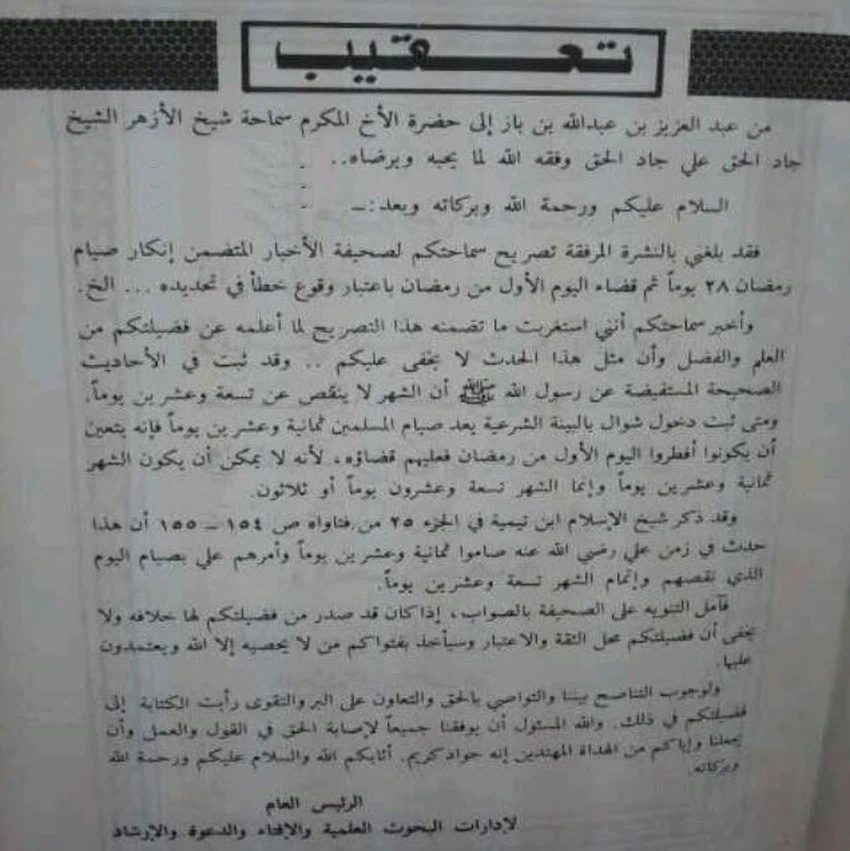 تعقيب
من عبد العزيز بن عبدالله بن باز إلى حضرة الأخ المكرم سماحة شيخ الأزهر الشيخ
جاد الحق علي جاد الحق وفقه الله لما يحبه ويرضاه..
السلام عليكم ورحمة الله وبركاته وبعد:ــ
فقد بلغني بالنشرة المرفقة تصريح سماحتكم لصحيفة الأخبار المتضمن إنكار صيام
رمضان ٢٨ يوماً ثم قضاء اليوم الأول من رمضان باعتبار وقوع خطأ في تحديده ... الخ.
وأخبر سماحتكم أنني استغربت ما تضمنه هذا التصريح لما أعلمه عن فضيلتكم من
العلم والفضل وأن مثل هذا الحدث لا يخفى عليكم .. وقد ثبت في الأحاديث
الصحيحة المستفيضة عن رسول الله ﷺ أن الشهر لا ينقص عن تسعة وعشرين يوماً.
ومتى ثبت دخول شوال بالبينة الشرعية بعد صيام المسلمين ثمانية وعشرين يوماً فإنه يتعين
أن يكونوا أفطروا اليوم الأول من رمضان فعليهم قضاؤه، لأنه لا يمكن أن يكون الشهر
ثمانية وعشرين يوماً وإنما الشهر تسعة وعشرون يوماً أو ثلاثون.
وقد ذكر شيخ الإسلام ابن تيمية في الجزء ٢٥ من فتاواه ص ١٥٤ – ١٥٥ أن هذا
حدث في زمن علي رضي الله عنه صاموا ثمانية وعشرين يوماً وأمرهم علي بصيام اليوم
الذي نقصهم وإتمام الشهر تسعة وعشرين يوماً.
فآمل التنويه على الصحيفة بالصواب، إذا كان قد صدر من فضيلتكم لها خلافه ولا
يخفى أن فضيلتكم محل الثقة والاعتبار وسيأخذ بفتواكم من لا يحصيه إلا الله ويعتمدون
عليها.
ولوجوب التناصح بيننا والتواصي بالحق والتعاون على البر والتقوى رأيت الكتابة إلى
فضيلتكم في ذلك. والله المسئول أن يوفقنا جميعاً لإصابة الحق في القول والعمل وأن
يجعلنا وإياكم من الهداة المهتدين إنه جواد كريم. أثابكم الله والسلام عليكم ورحمة الله
وبركاته.
الرئيس العام
لإدارات البحوث العلمية والإفتاء والدعوة والإرشاد